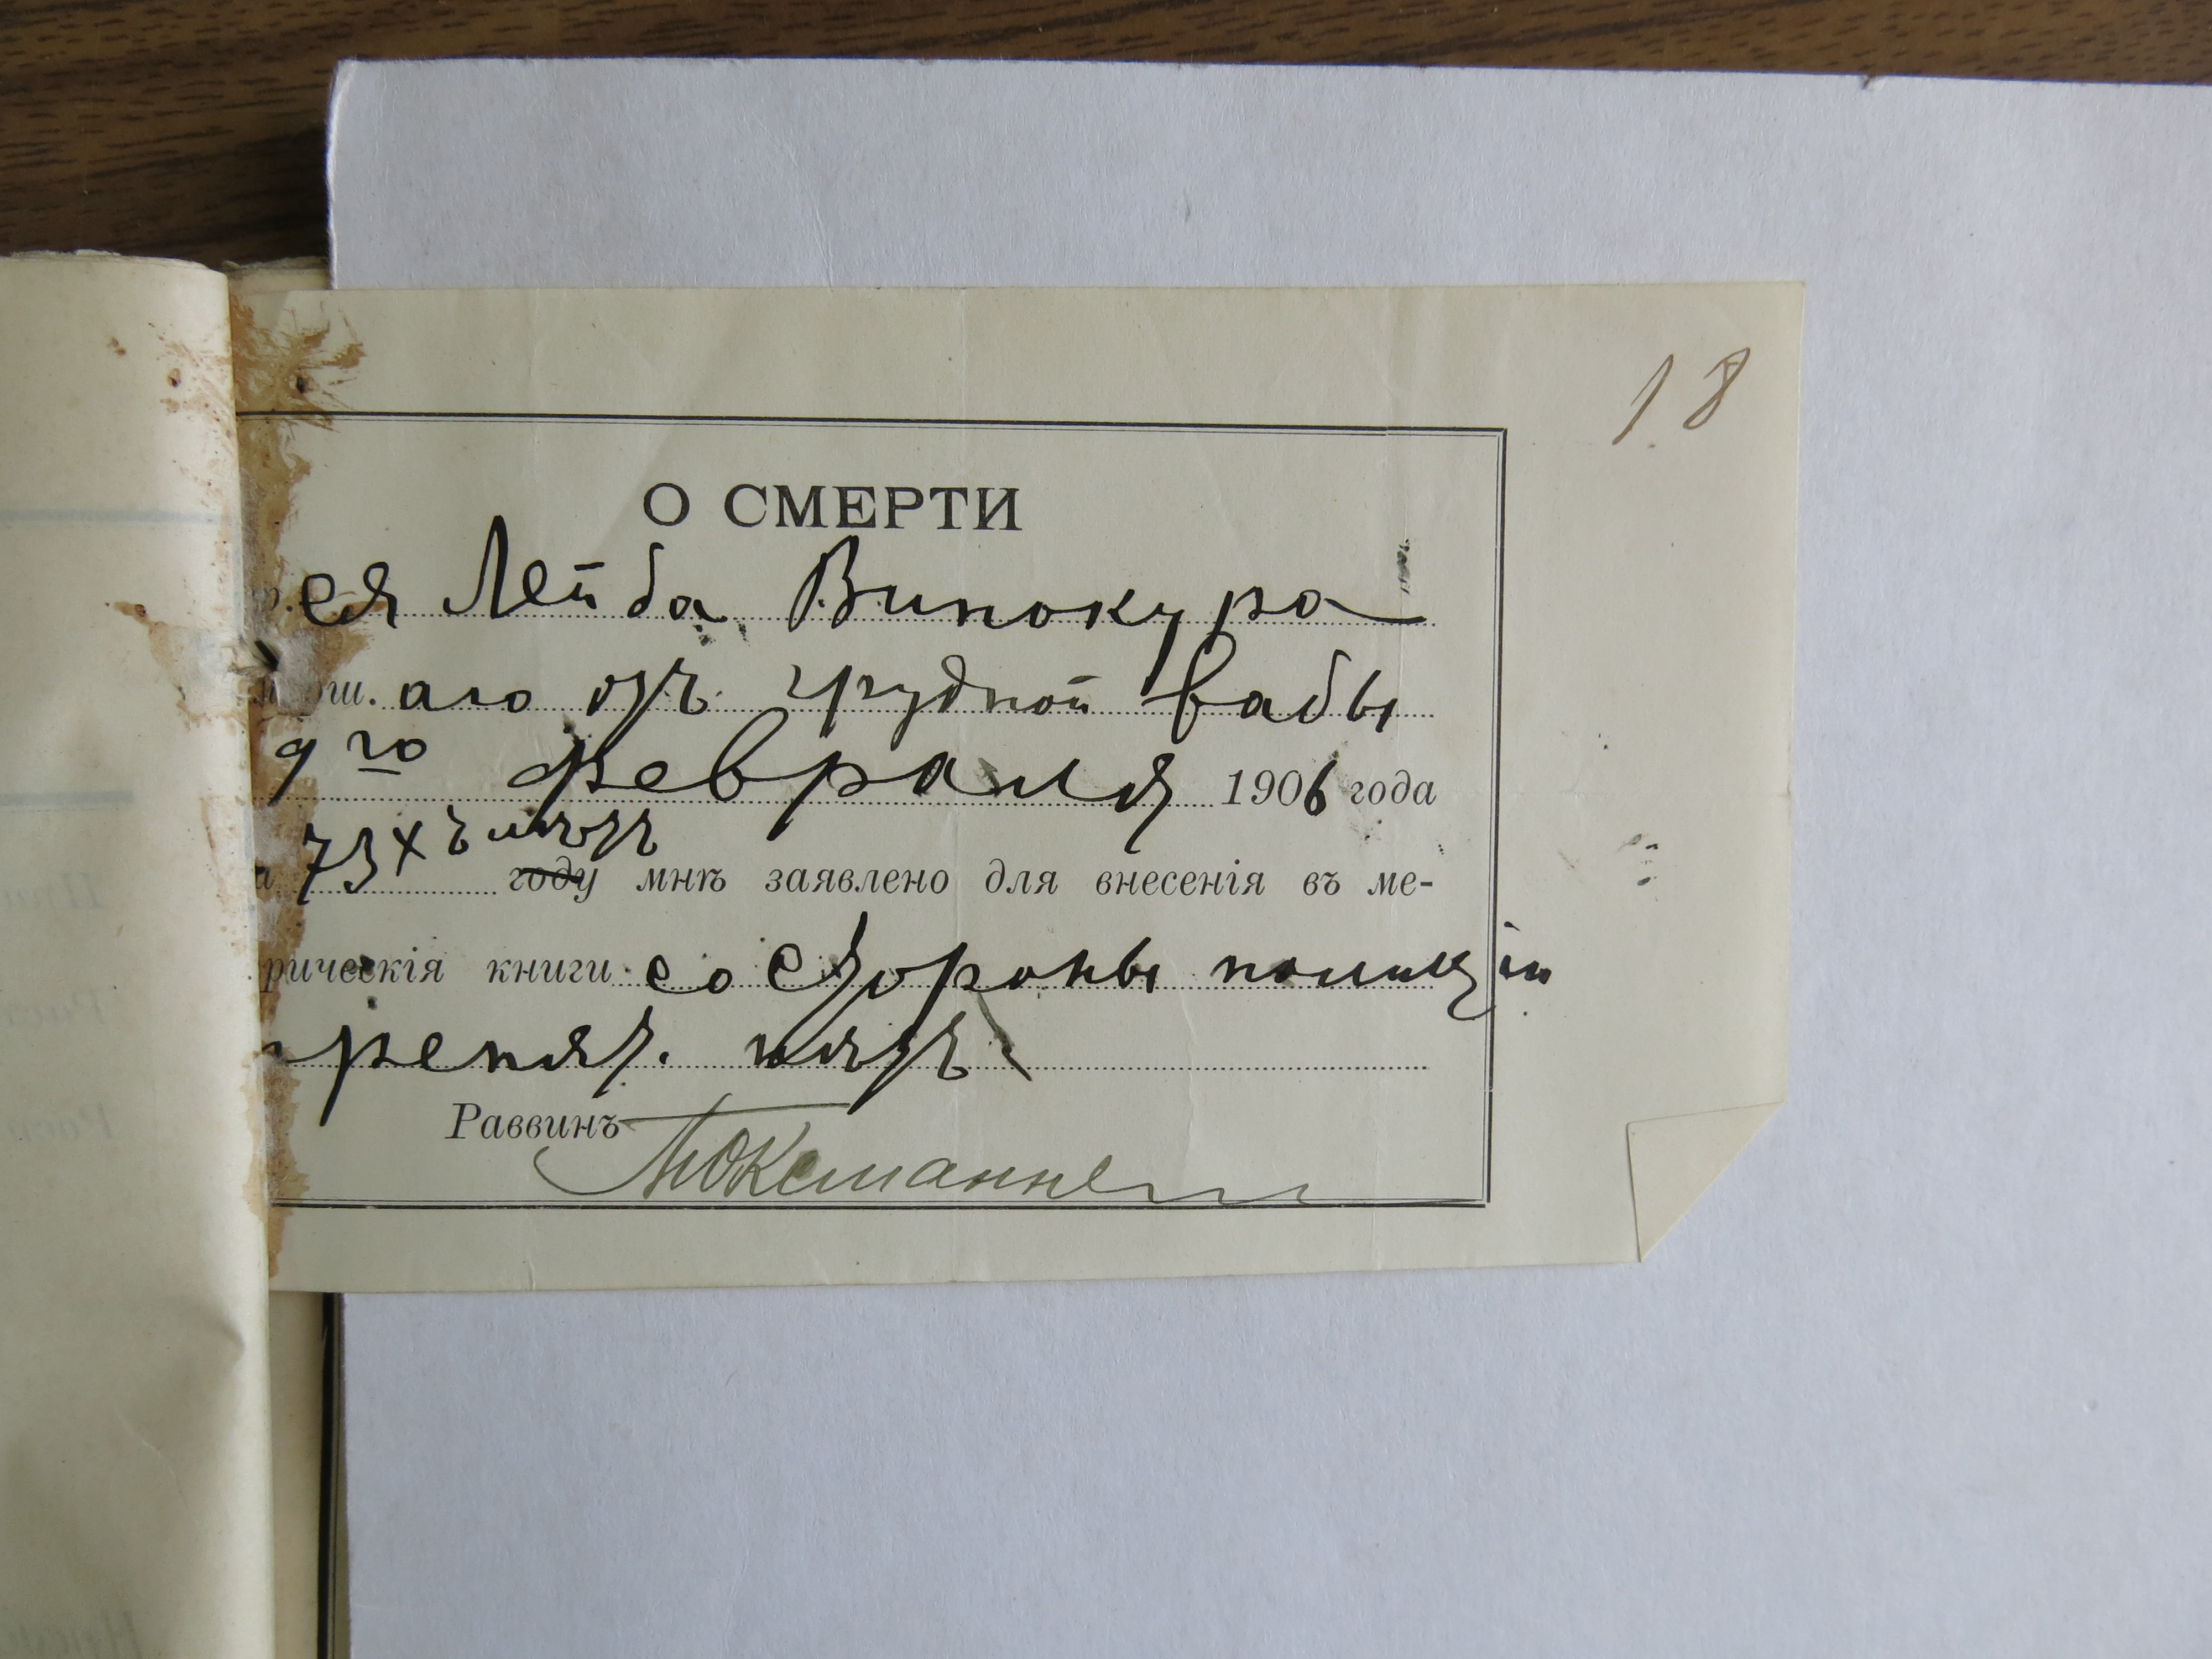 18
О СМЕРТИ
ея Лейба Винокура
ш. аго отъ грудной жабы
9го февраля 1906 года
73хъ лѣтъ году мнѣ заявлено для внесенія въ ме-
рическія книги со стороны полиціи
препят. нѣтъ
Раввинъ